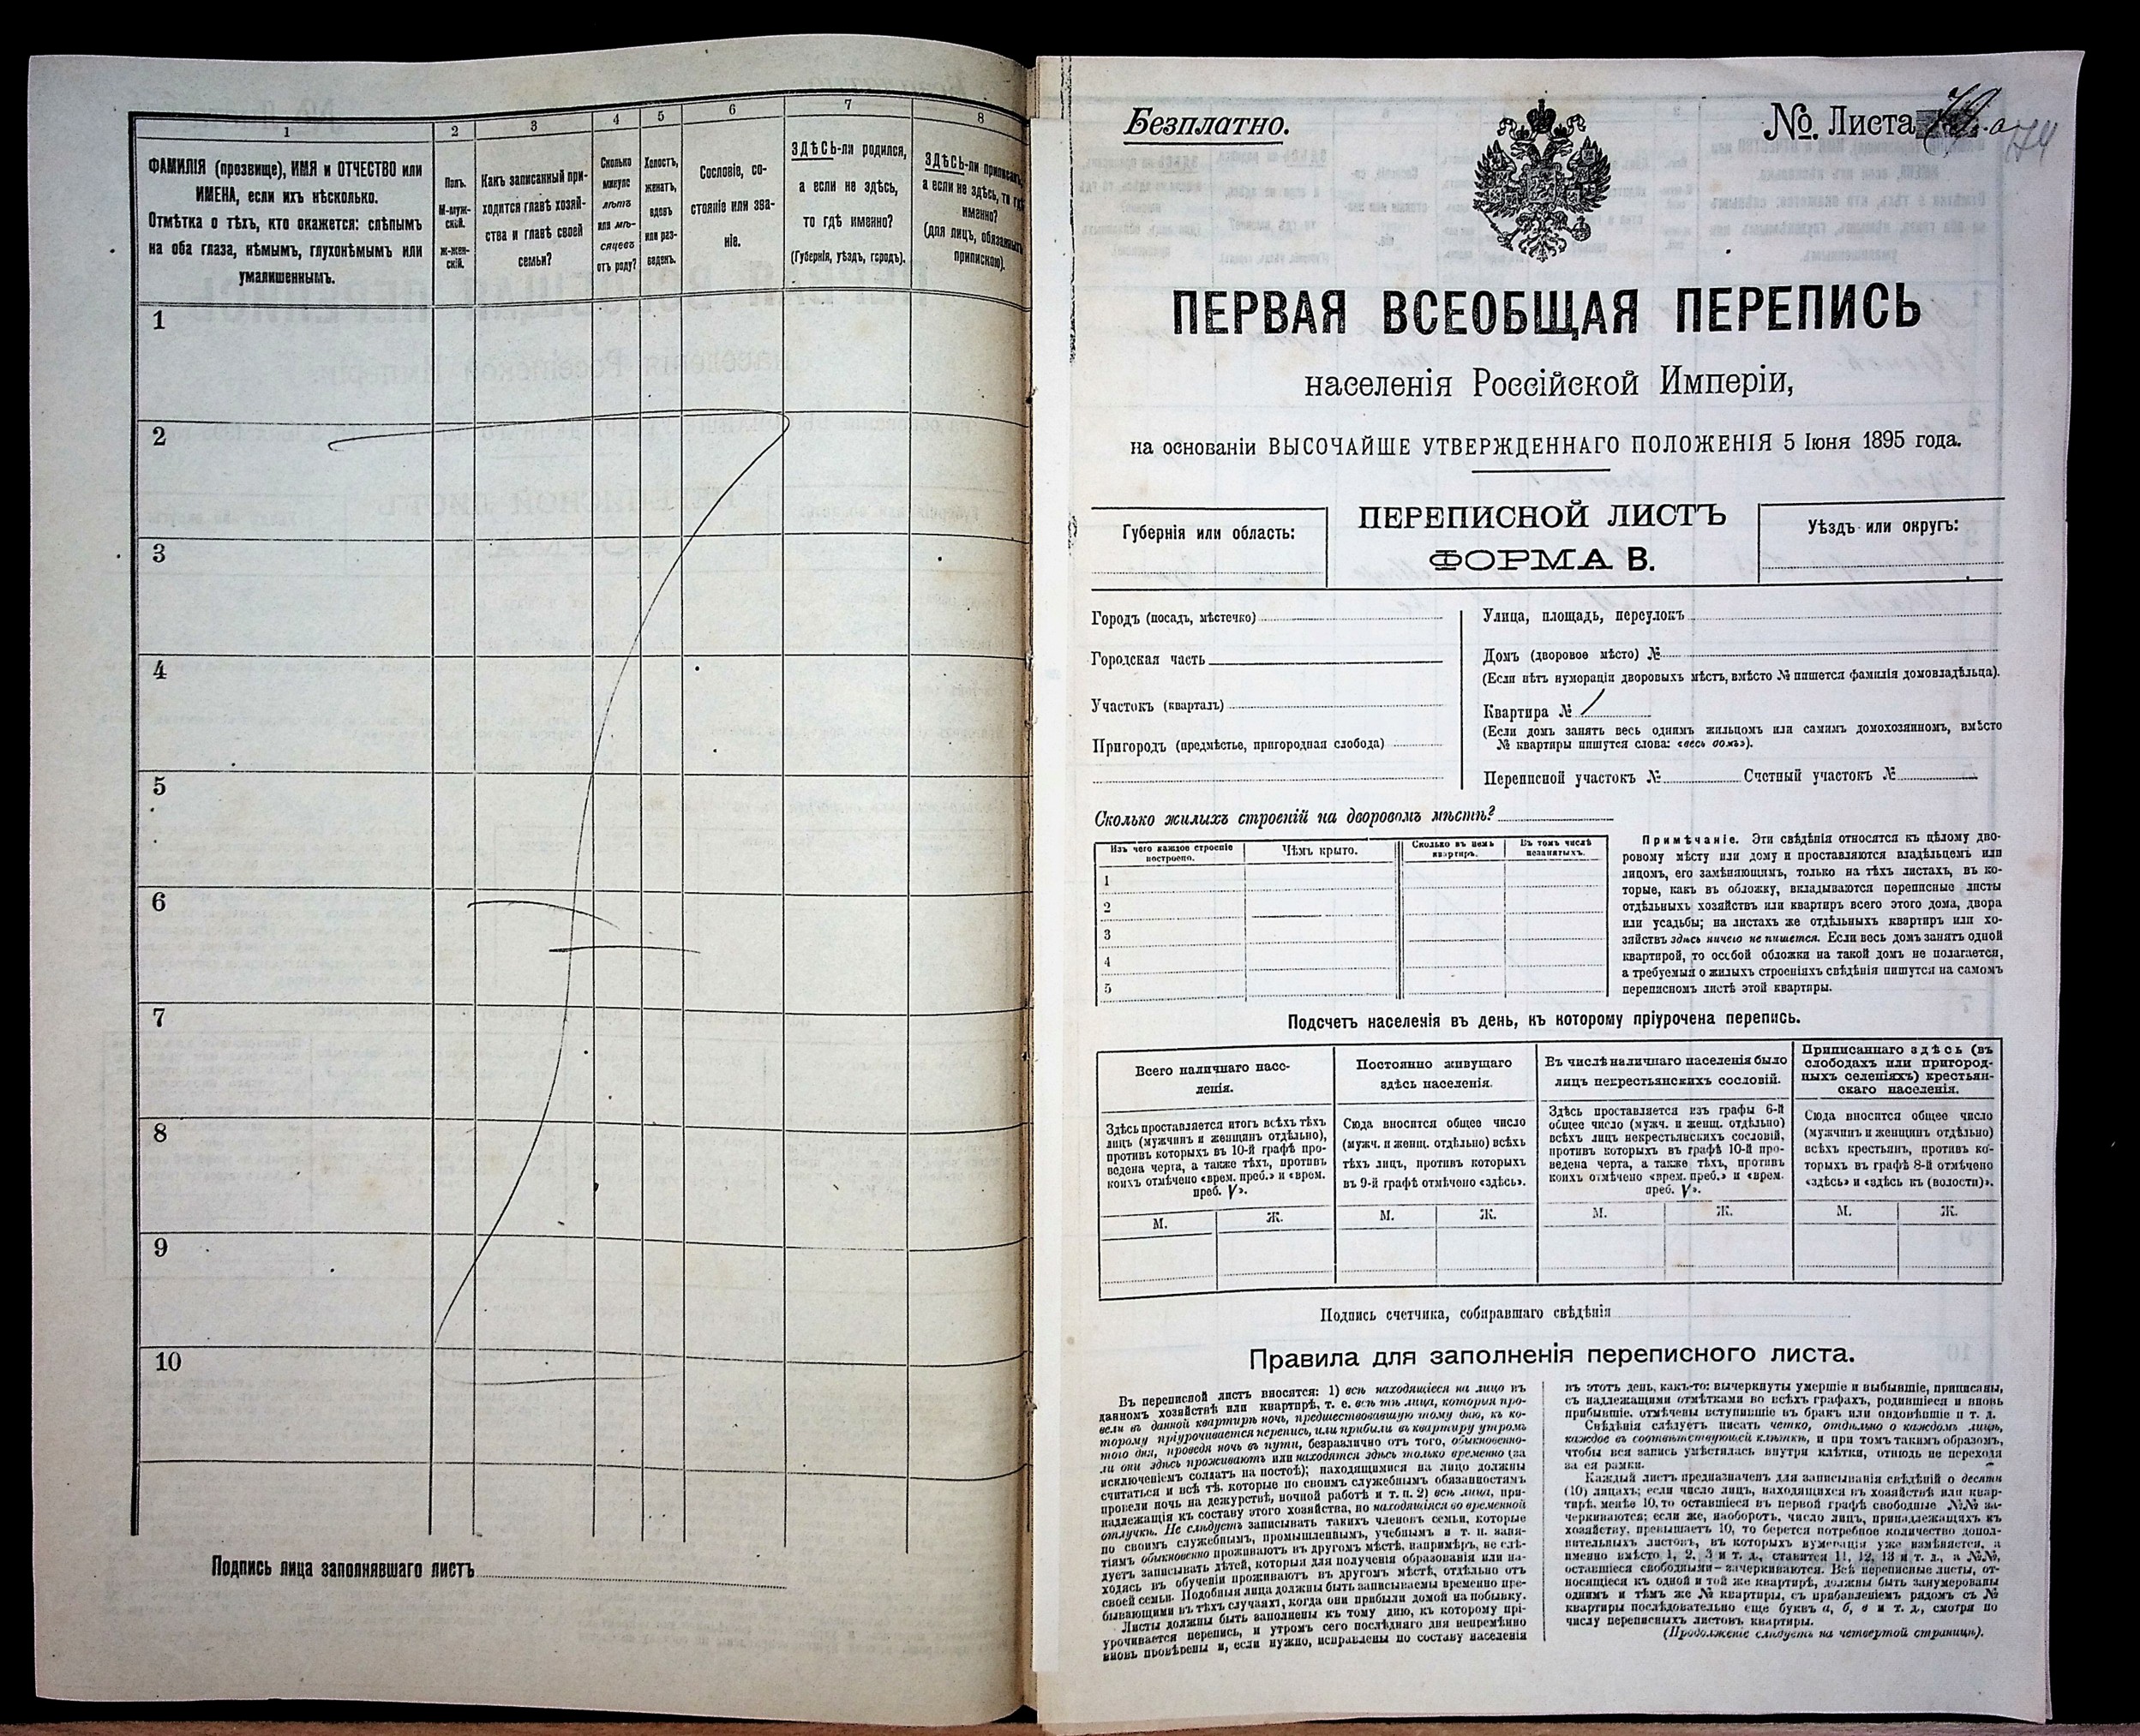 1
2
3
4
5
6
7
8
ФАМИЛІЯ (прозвище), ИМЯ и ОТЧЕСТВО или
ИМЕНА, если ихъ нѣсколько.
Отмѣтка о тѣхъ, кто окажется: слѣпымъ
на оба глаза, нѣмымъ, глухонѣмымъ или
умалишеннымъ.
Полъ.
М-муж-
ской.
Ж-жен-
скій.
Какъ записанный при-
ходится главѣ хозяй-
ства и главѣ своей
семьи?
Сколько
минуло
лѣтъ
или мѣ-
сяцевъ
отъ роду?
Холостъ,
женатъ,
вдовъ
или раз-
веденъ.
Сословіе, со-
стояніе или зва-
ніе.
ЗДѢСЬ-ли родился,
а если не здѣсь,
то гдѣ именно?
(Губернія, уѣздъ, городъ).
ЗДѢСЬ-ли приписанъ,
а если не здѣсь, то гдѣ
именно?
(для лицъ, обязанныхъ
припискою).
1
2
3
4
5
6
7
8
9
10
Подпись лица заполнявшаго листъ
Безплатно.
№. Листа
74
ПЕРВАЯ ВСЕОБЩАЯ ПЕРЕПИСЬ
населенія Россійской Имперіи,
на основаніи ВЫСОЧАЙШЕ УТВЕРЖДЕННАГО ПОЛОЖЕНІЯ 5 Іюня 1895 года.
Губернія или область:
ПЕРЕПИСНОЙ ЛИСТЪ
ФОРМА В.
Уѣздъ или округъ:
Городъ (посадъ, мѣстечко)
Городская часть
Участокъ (кварталъ)
Пригородъ (предмѣстье, пригородная слобода)
Улица, площадь, переулокъ
Домъ (дворовое мѣсто) №
(Если нѣтъ нумораціи дворовыхъ мѣстъ, вмѣсто № пишется фамилія домовладѣльца).
Квартира №
(Если домъ занятъ весь однимъ жильцомъ или самимъ домохозяиномъ, вмѣсто
№ квартиры пишутся слова: «весь домъ»).
Переписной участокъ № Счетный участокъ №
Сколько жилыхъ строеній на дворовомъ мѣстѣ?
Изъ чего каждое строеніе
построено.
Чѣмъ крыто.
Сколько въ немъ
квартиръ.
Въ томъ числѣ
незанятыхъ.
1
2
3
4
5
Примѣчаніе. Эти свѣдѣнія относятся къ цѣлому дво-
ровому мѣсту или дому и проставляются владѣльцемъ или
лицомъ, его замѣняющимъ, только на тѣхъ листахъ, въ ко-
торые, какъ въ обложку, вкладываются переписные листы
отдѣльныхъ хозяйствъ или квартиръ всего этого дома, двора
или усадьбы; на листахъ же отдѣльныхъ квартиръ или хо-
зяйствъ здѣсь ничего не пишется. Если весь домъ занятъ одной
квартирой, то особой обложки на такой домъ не полагается,
а требуемыя о жилыхъ строеніяхъ свѣдѣнія пишутся на самомъ
переписномъ листѣ этой квартиры.
Подсчетъ населенія въ день, къ которому пріурочена перепись.
Всего наличнаго насе-
ленія.
Постоянно живущаго
здѣсь населенія.
Въ числѣ наличнаго населенія было
лицъ некрестьянскихъ сословій.
Приписаннаго здѣсь (въ
слободахъ или пригород-
ныхъ селеніяхъ) крестьян-
скаго населенія.
Здѣсь проставляется итогъ всѣхъ тѣхъ
лицъ (мужчинъ и женщинъ отдѣльно),
противъ которыхъ въ 10-й графѣ про-
ведена черта, а также тѣхъ, противъ
коихъ отмѣчено «врем. преб.» и «врем.
преб. V».
Сюда вносится общее число
(мужч. и женщ. отдѣльно) всѣхъ
тѣхъ лицъ, противъ которыхъ
въ 9-й графѣ отмѣчено «здѣсь».
Здѣсь проставляется изъ графы 6-й
общее число (мужч. и женщ. отдѣльно)
всѣхъ лицъ некрестьянскихъ сословій,
противъ которыхъ въ графѣ 10-й про-
ведена черта, а также тѣхъ, противъ
коихъ отмѣчено «врем. преб.» и «врем.
преб. V».
Сюда вносится общее число
(мужчинъ и женщинъ отдѣльно)
всѣхъ крестьянъ, противъ ко-
торыхъ въ графѣ 8-й отмѣчено
«здѣсь» и «здѣсь къ (волости)».
М. Ж. М. Ж. М. Ж. М. Ж.
Подпись счетчика, собиравшаго свѣдѣнія
Правила для заполненія переписного листа.
Въ переписной листъ вносятся: 1) всѣ находящіеся на лицо въ
данномъ хозяйствѣ или квартирѣ, т. е. всѣ тѣ лица, которыя про-
вели въ данной квартирѣ ночь, предшествовавшую тому дню, къ ко-
торому пріурочивается перепись, или прибыли въ квартиру утромъ
того дня, проведя ночь въ пути, безразлично отъ того, обыкновенно-
ли они здѣсь проживаютъ или находятся здѣсь только временно (за
исключеніемъ солдатъ на постоѣ); находящимися на лицо должны
считаться и всѣ тѣ, которые по своимъ служебнымъ обязанностямъ
провели ночь на дежурствѣ, ночной работѣ и т. п. 2) всѣ лица, при-
надлежащія къ составу этого хозяйства, но находящіяся во временной
отлучкѣ. Не слѣдуетъ записывать такихъ членовъ семьи, которые
по своимъ служебнымъ, промышленнымъ, учебнымъ и т. п. заня-
тіямъ обыкновенно проживаютъ въ другомъ мѣстѣ, напримѣръ, не слѣ-
дуетъ записывать дѣтей, которыя для полученія образованія или на-
ходясь въ обученіи проживаютъ въ другомъ мѣстѣ, отдѣльно отъ
своей семьи. Подобныя лица должны быть записываемы временно пре-
бывающими въ тѣхъ случаяхъ, когда они прибыли домой на побывку.
Листы должны быть заполнены къ тому дню, къ которому прі-
урочивается перепись, и утромъ сего послѣдняго дня непремѣнно
вновь провѣрены и, если нужно, исправлены по составу населенія
въ этотъ день, какъ-то: вычеркнуты умершіе и выбывшіе, приписаны,
съ надлежащими отмѣтками во всѣхъ графахъ, родившіеся и вновь
прибывшіе, отмѣчены вступившіе въ бракъ или овдовѣвшіе и т. д.
Свѣдѣнія слѣдуетъ писать четко, отдѣльно о каждомъ лицѣ,
каждое въ соотвѣтствующей клѣткѣ, и при томъ такимъ образомъ,
чтобы вся запись умѣстялась внутри клѣтки, отнюдь не переходя
за ея рамки.
Каждый листъ предназначенъ для записыванія свѣдѣній о десяти
(10) лицахъ; если число лицъ, находящихся въ хозяйствѣ или квар-
тирѣ, менѣе 10, то оставшіеся въ первой графѣ свободные №№ за-
черкиваются; если же, наоборотъ, число лицъ, принадлежащихъ къ
хозяйству, превышаетъ 10, то берется потребное количество допол-
нительныхъ листовъ, въ которыхъ нумерація уже измѣняется, а
именно вмѣсто 1, 2, 3 и т. д., ставится 11, 12, 13 и т. д., а №№,
оставшіеся свободными – зачеркиваются. Всѣ переписные листы, от-
носящіеся къ одной и той же квартирѣ, должны быть занумерованы
однимъ и тѣмъ же № квартиры, съ прибавленіемъ рядомъ съ №
квартиры послѣдовательно еще буквъ а, б, в и т. д., смотря по
числу переписныхъ листовъ квартиры.
(Продолженіе слѣдуетъ на четвертой страницѣ).